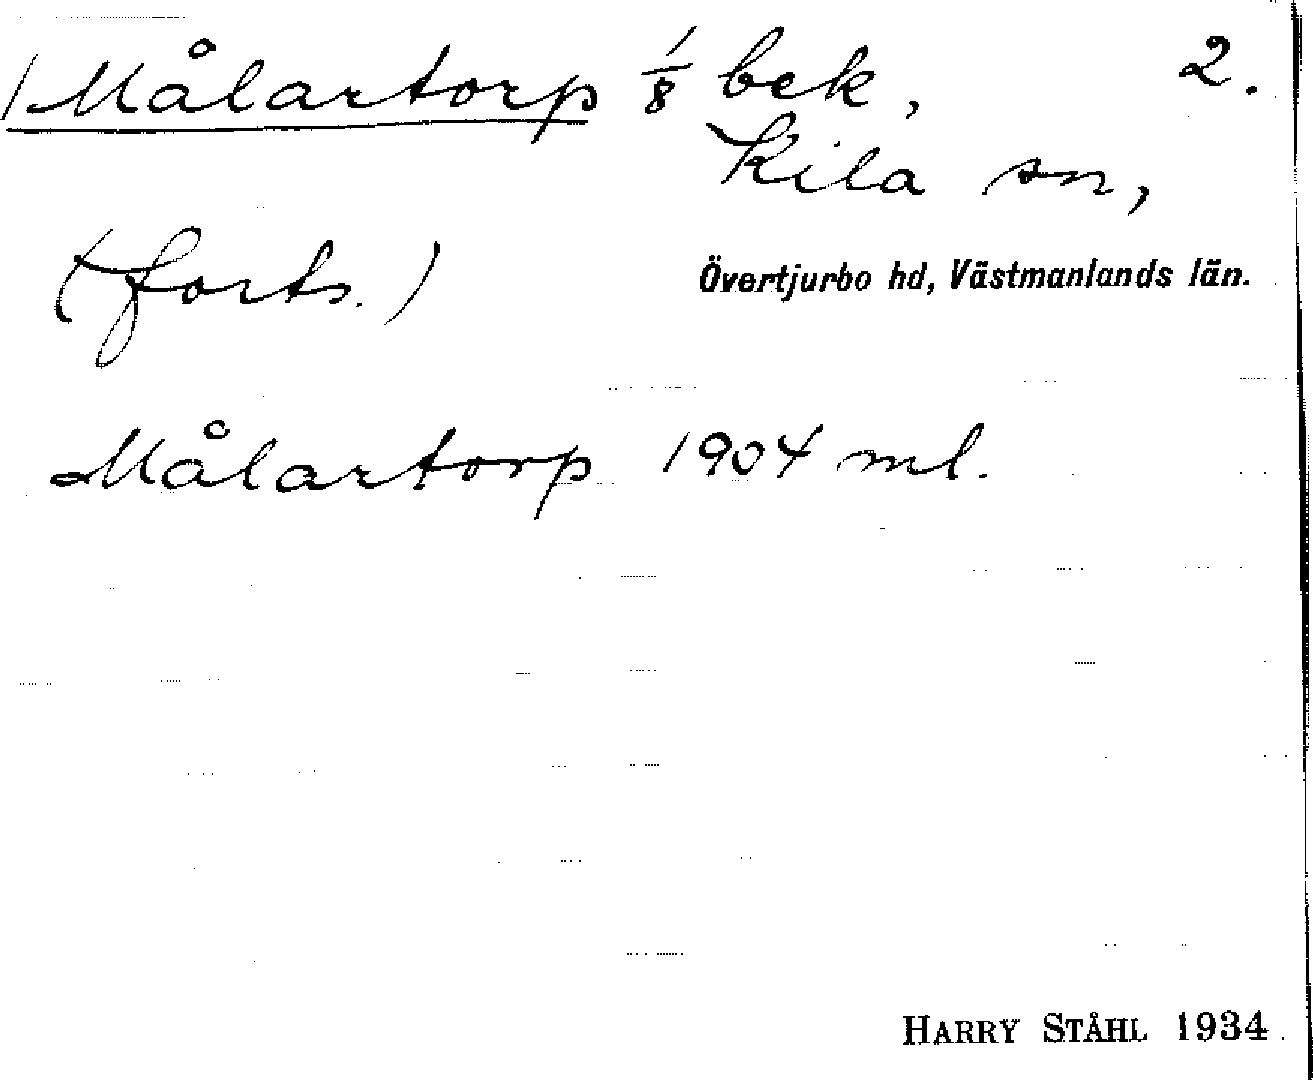 Målartorp 1/8 bek, 2.
Kila sn,
(forts.)
Övertjurbo hd, Västmanlands län.
Målartorp 1904 ml.
HARRY STÅHL 1934